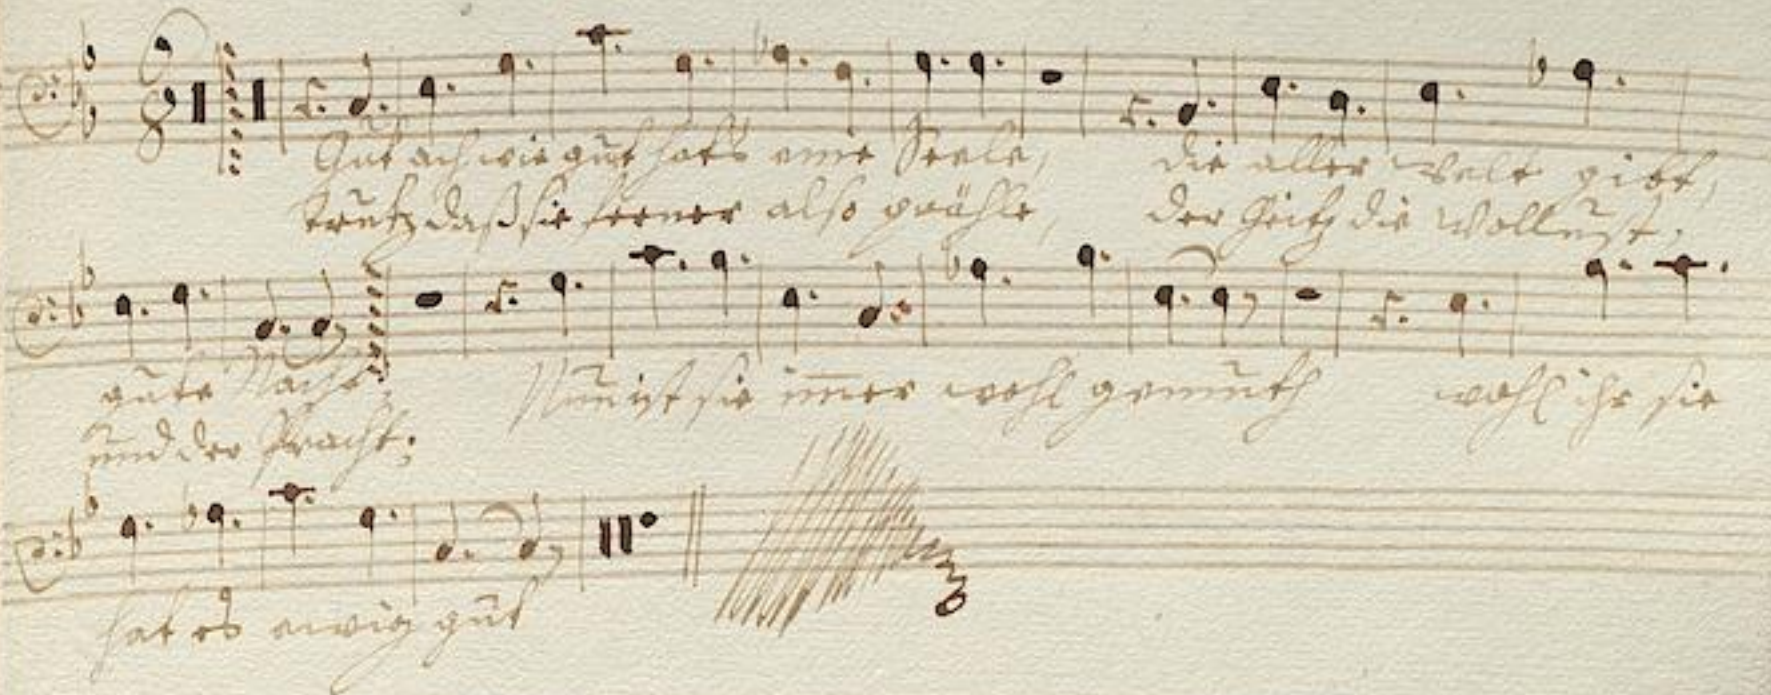 Gut ach wie gut hat's eine Seele, die aller Welt gibt,
trutz daß sie ferner also prähle, der Geitz die Wollust,
gute Nacht;
Nun ist sie immer wohl gemuth wohl ihr sie
und der Pracht;
hat es ewig gut